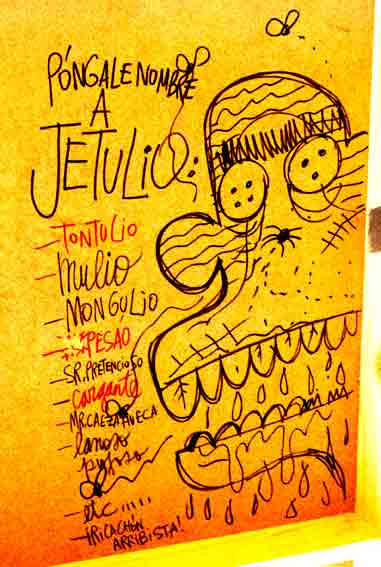 PÓNGALE NOMBRE
A
JETULIO:
- TONTULIO
- Mulio
- MONGULIO
- PESAO
- SR. PRETENCIOSO
- Cargante
- MR. CAEZA HUECA
- lanoso
- etc.....
- ¡RICACHÓN
ARRIBISTA!